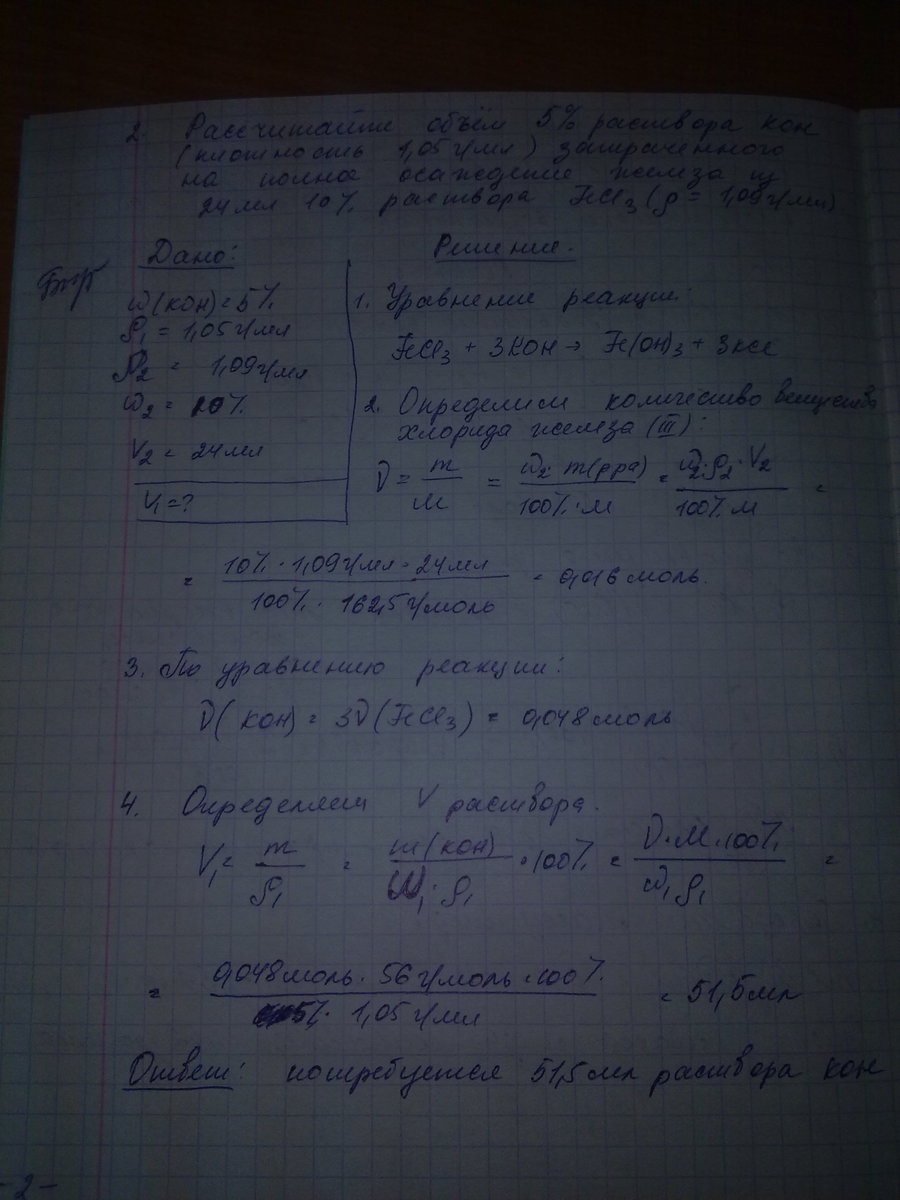 2. Рассчитайте объём 5% раствора КОН
(плотность 1,05 г/мл) затраченного
на полное осаждение железа из
24 мл 10% раствора FeCl₃ (ρ = 1,09 г/мл)
Дано: Решение.
ω(КОН) = 5%
ρ₁ = 1,05 г/мл
ρ₂ = 1,09 г/мл
ω₂ = 10%
V₂ = 24 мл
V₁ = ?
1. Уравнение реакции:
FeCl₃ + 3KOH → Fe(OH)₃ + 3KCl
2. Определим количество вещества
хлорида железа (III):
ν = m/M = ω₂·m(р-ра)/100%·M = ω₂·ρ₂·V₂/100%·M =
= 10%·1,09 г/мл·24 мл/100%·162,5 г/моль = 0,016 моль.
3. По уравнению реакции:
ν(КОН) = 3ν(FeCl₃) = 0,048 моль
4. Определяем V раствора.
V₁ = m/ρ₁ = m(КОН)/ω₁·ρ₁ · 100% = ν·M·100%/ω₁ρ₁ =
= 0,048 моль·56 г/моль·100%/5%·1,05 г/мл = 51,5 мл
Ответ: потребуется 51,5 мл раствора КОН
-2-